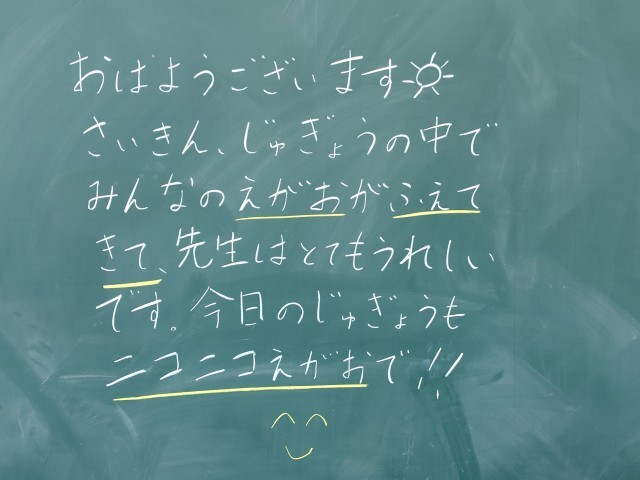 おはようございます☀
さいきん、じゅぎょうの中で
みんなのえがおがふえて
きて、先生はとてもうれしい
です。今日のじゅぎょうも
ニコニコえがおで!!